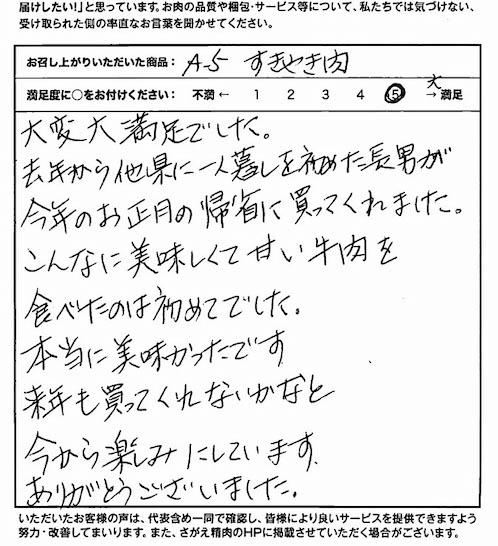 届けしたい!」と思っています。お肉の品質や梱包・サービス等について、私たちでは気づけない、
受け取られた側の率直なお言葉を聞かせてください。
お召し上がりいただいた商品: A-5 すきやき肉
満足度に○をお付けください: 不満 ← 1 2 3 4 5 → 大満足
大変大満足でした。
去年から他県に一人暮しを初めた長男が
今年のお正月の帰省に買ってくれました。
こんなに美味しくて甘い牛肉を
食べたのは初めてでした。
本当に美味かったです
来年も買ってくれないかなと
今から楽しみにしています。
ありがとうございました。
いただいたお客様の声は、代表含め一同で確認し、皆様により良いサービスを提供できますよう
努力・改善してまいります。また、さがえ精肉のHPに掲載させていただく場合がございます。